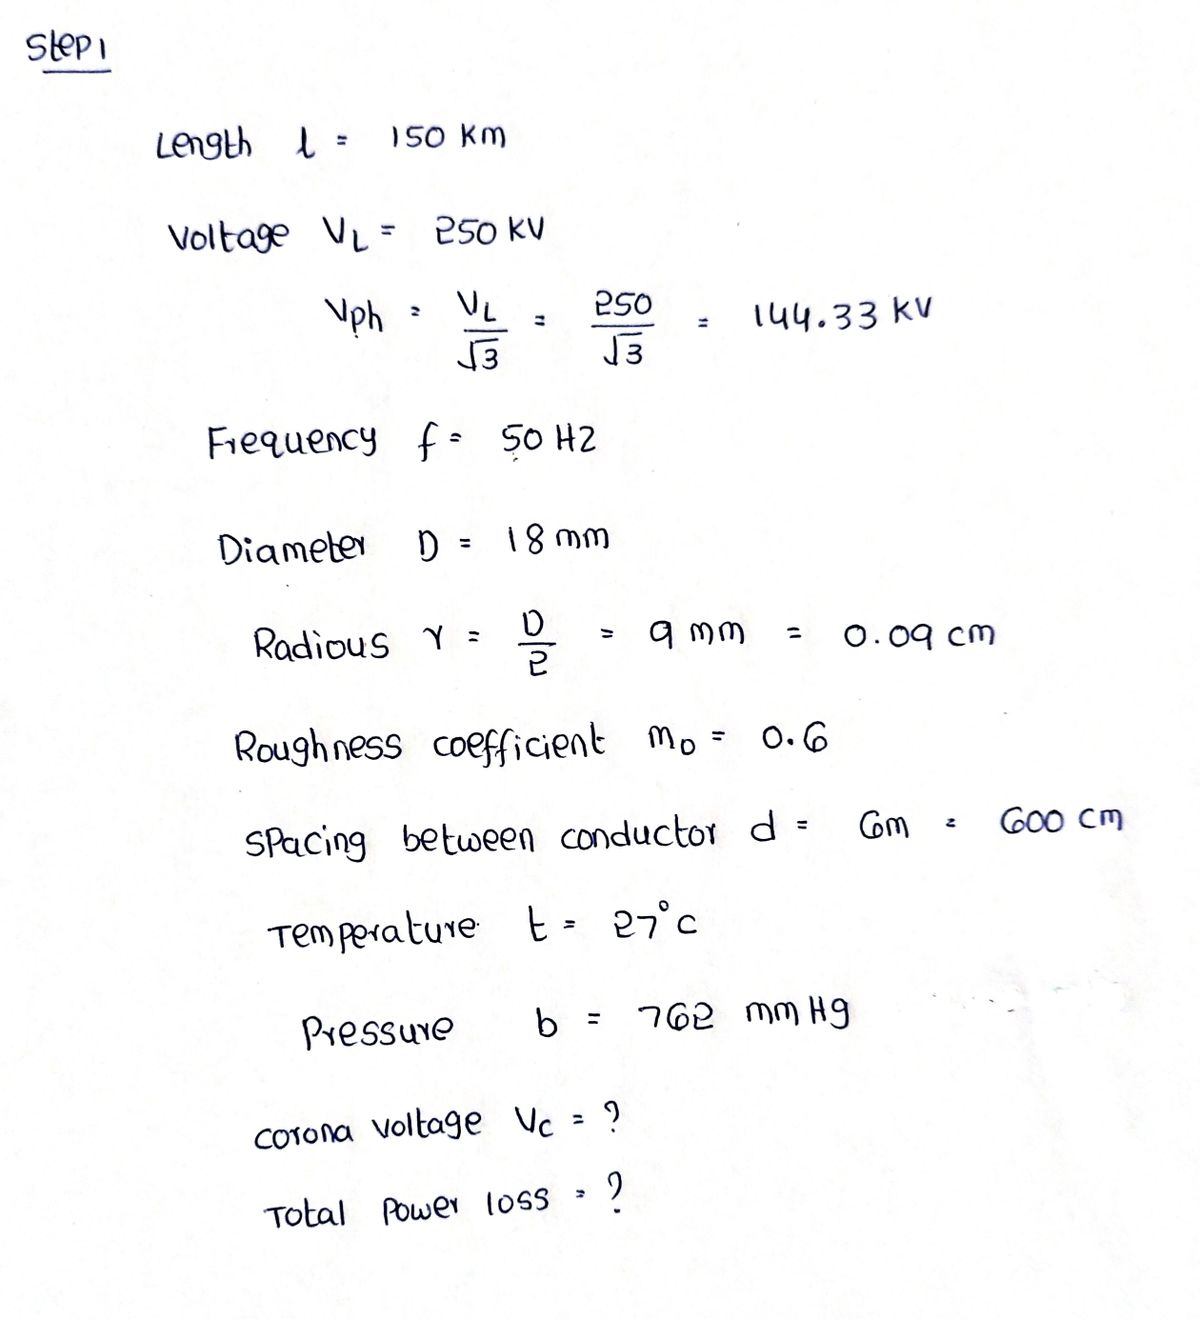 Step 1
Length l = 150 km
Voltage VL = 250 kV
Vph = VL/√3 = 250/√3 = 144.33 kV
Frequency f = 50 Hz
Diameter D = 18 mm
Radious r = D/2 = 9 mm = 0.09 cm
Roughness coefficient mo = 0.6
Spacing between conductor d = 6m = 600 cm
Temperature t = 27°c
Pressure b = 762 mm Hg
corona voltage Vc = ?
Total Power loss = ?